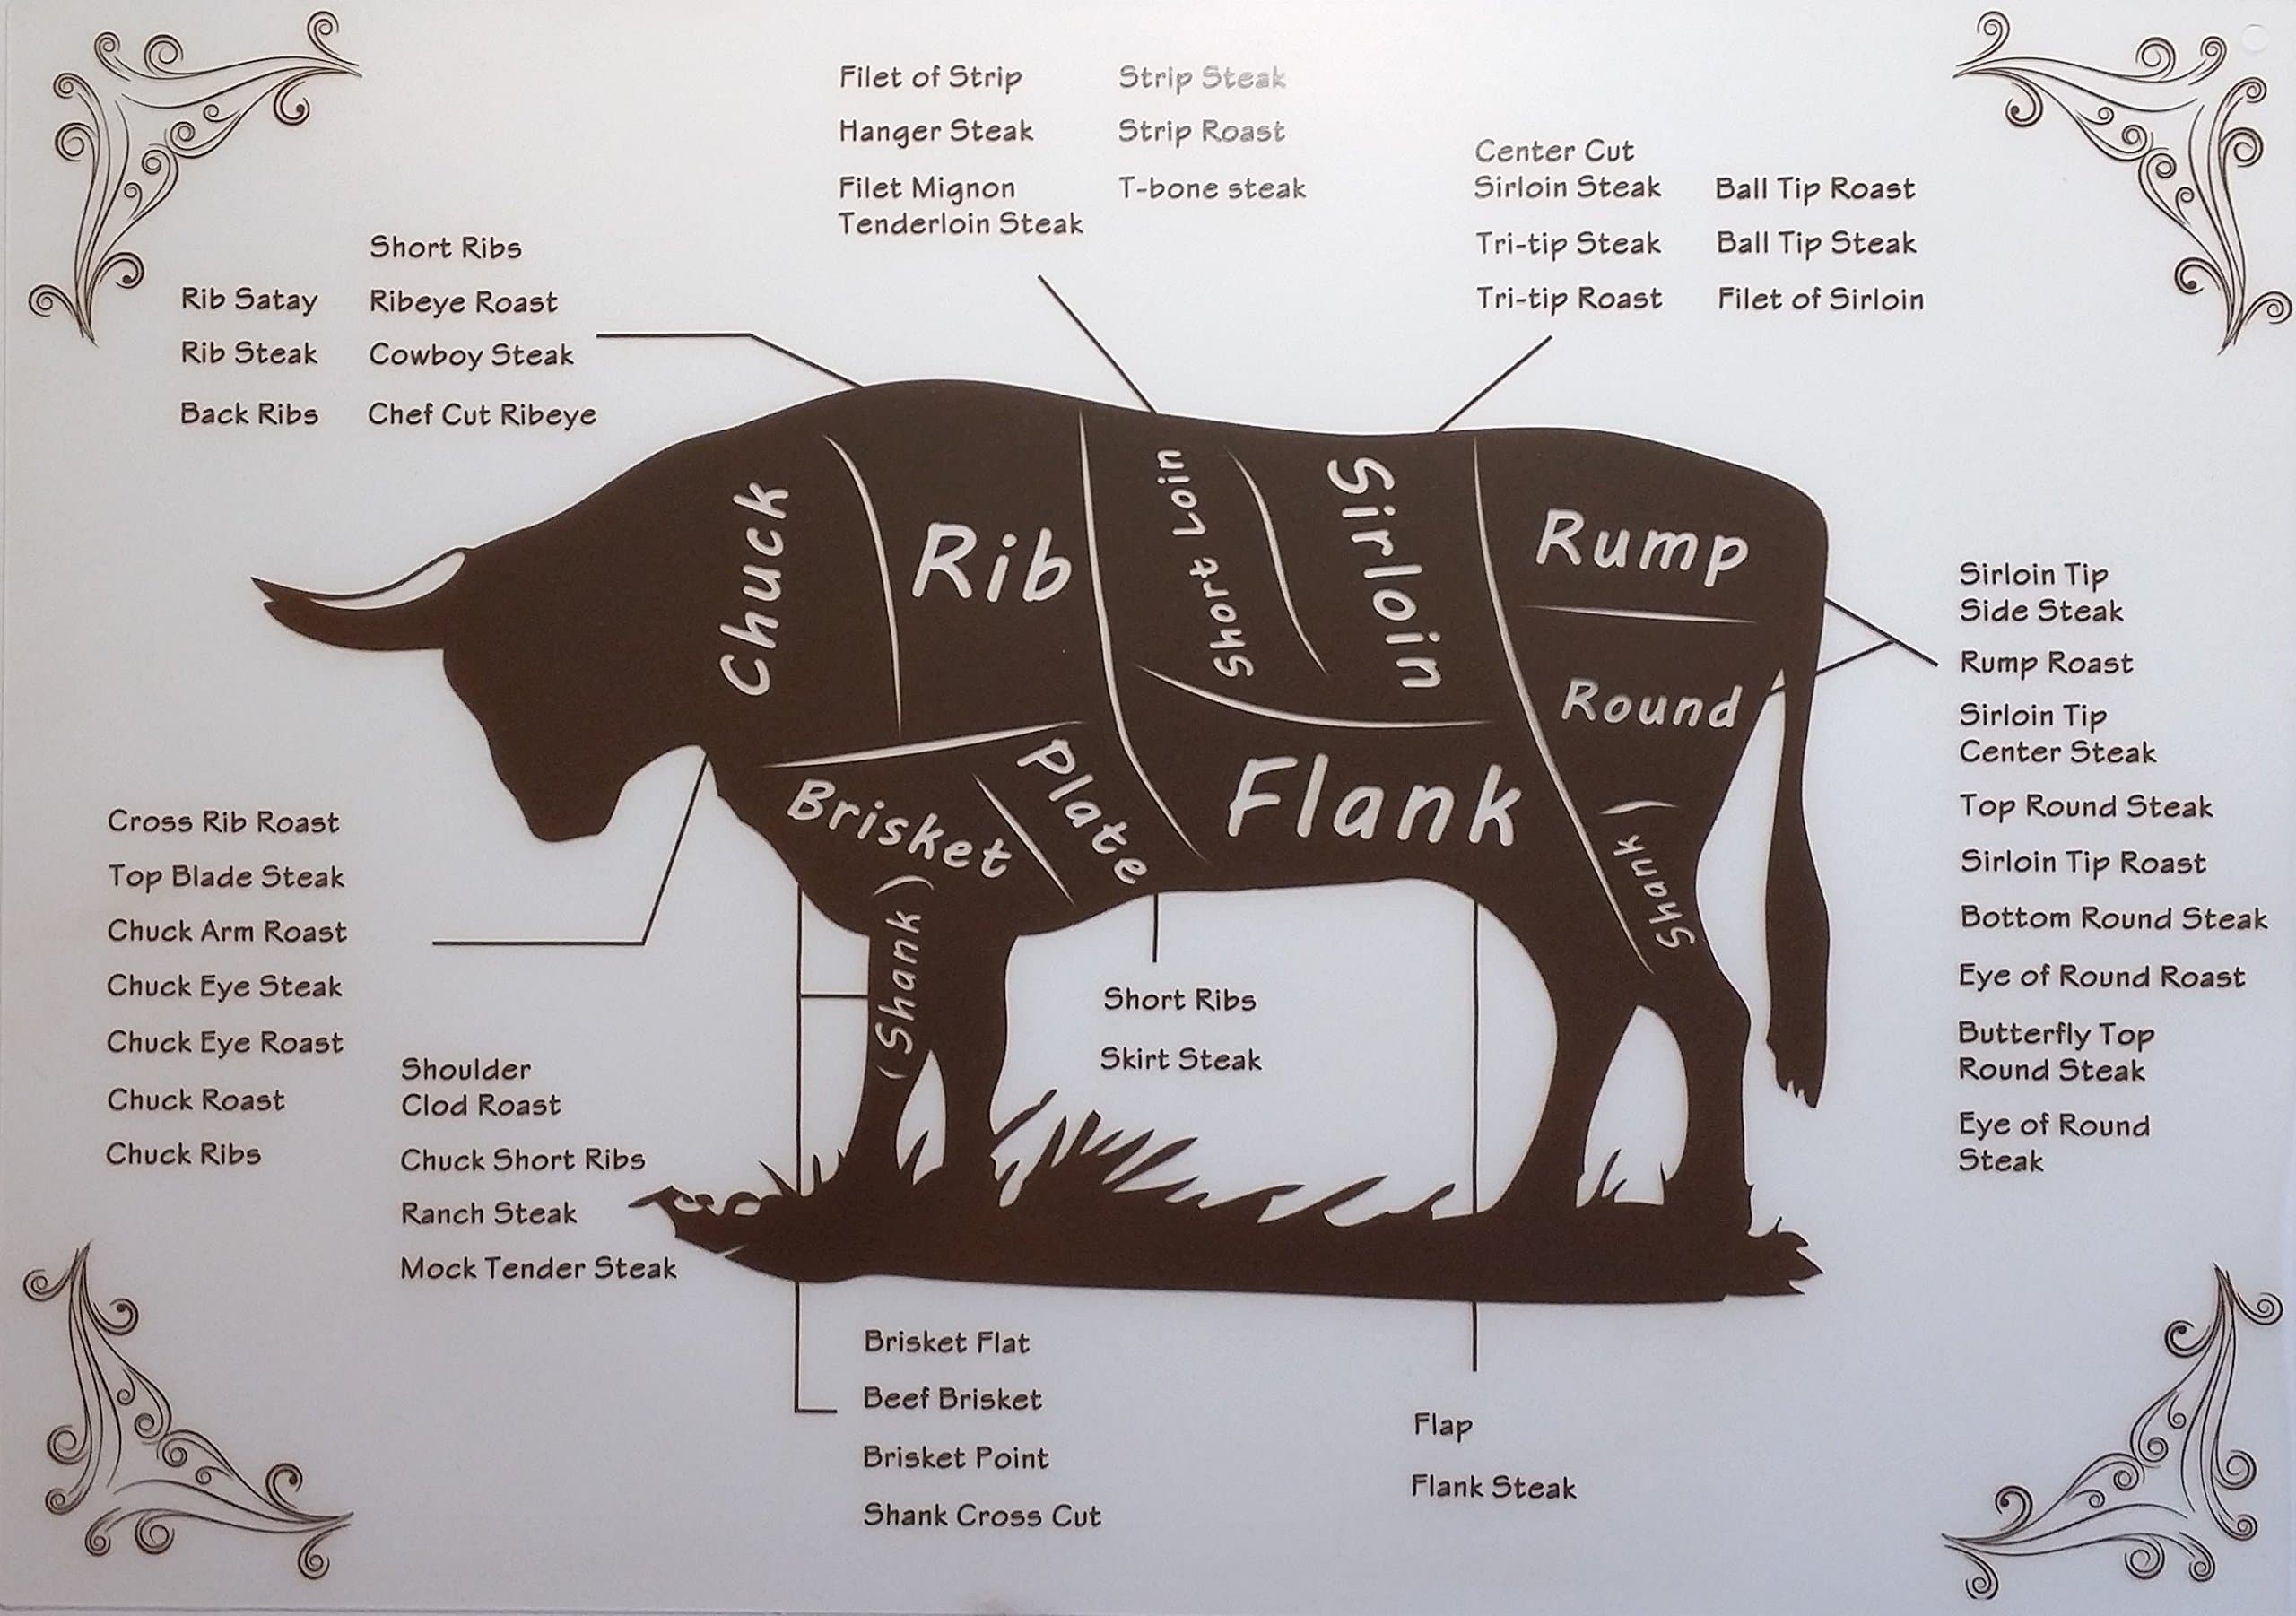 Filet of Strip
Hanger Steak
Filet Mignon
Tenderloin Steak
Strip Steak
Strip Roast
T-bone steak
Center Cut
Sirloin Steak
Tri-tip Steak
Tri-tip Roast
Ball Tip Roast
Ball Tip Steak
Filet of Sirloin
Rib Satay
Rib Steak
Back Ribs
Short Ribs
Ribeye Roast
Cowboy Steak
Chef Cut Ribeye
Chuck
Rib
Short Loin
Sirloin
Rump
Round
Brisket
Plate
Flank
(Shank)
(Shank)
Sirloin Tip
Side Steak
Rump Roast
Sirloin Tip
Center Steak
Top Round Steak
Sirloin Tip Roast
Bottom Round Steak
Eye of Round Roast
Butterfly Top
Round Steak
Eye of Round
Steak
Cross Rib Roast
Top Blade Steak
Chuck Arm Roast
Chuck Eye Steak
Chuck Eye Roast
Chuck Roast
Chuck Ribs
Shoulder
Clod Roast
Chuck Short Ribs
Ranch Steak
Mock Tender Steak
Short Ribs
Skirt Steak
Brisket Flat
Beef Brisket
Brisket Point
Shank Cross Cut
Flap
Flank Steak